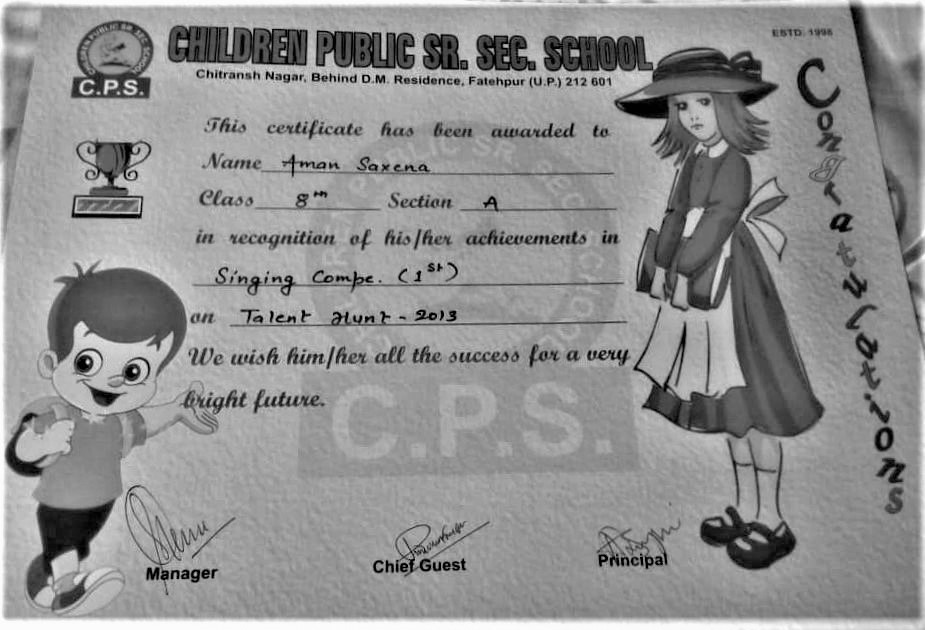 CHILDREN PUBLIC SR. SEC. SCHOOL
ESTD. 1998
C.P.S.
Chitransh Nagar, Behind D.M. Residence, Fatehpur (U.P.) 212 601
Congratulations
This certificate has been awarded to
Name Aman Saxena
Class 8th Section A
in recognition of his/her achievements in
Singing Compe. (1st)
on Talent Hunt - 2013
We wish him/her all the success for a very
bright future.
C.P.S.
Manager
Chief Guest
Principal